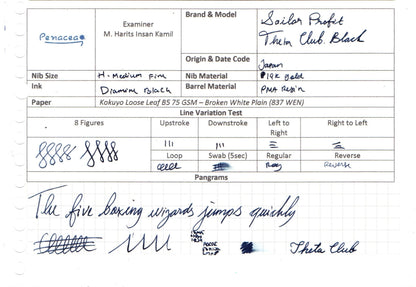 Penacea
Examiner
M. Harits Insan Kamil
Brand & Model
Sailor Profit
Thein Club Black
Origin & Date Code
Japan
Nib Size
H-Medium Fine
Nib Material
14K Gold
Ink
Diamine Black
Barrel Material
PMA Resin
Paper
Kokuyo Loose Leaf B5 75 GSM – Broken White Plain (837 WEN)
Line Variation Test
8 Figures
Upstroke
Downstroke
Left to Right
Right to Left
Loop
Swab (5sec)
Regular
Reverse
Reverse
Pangrams
The five boxing wizards jumps quickly
Theta Club